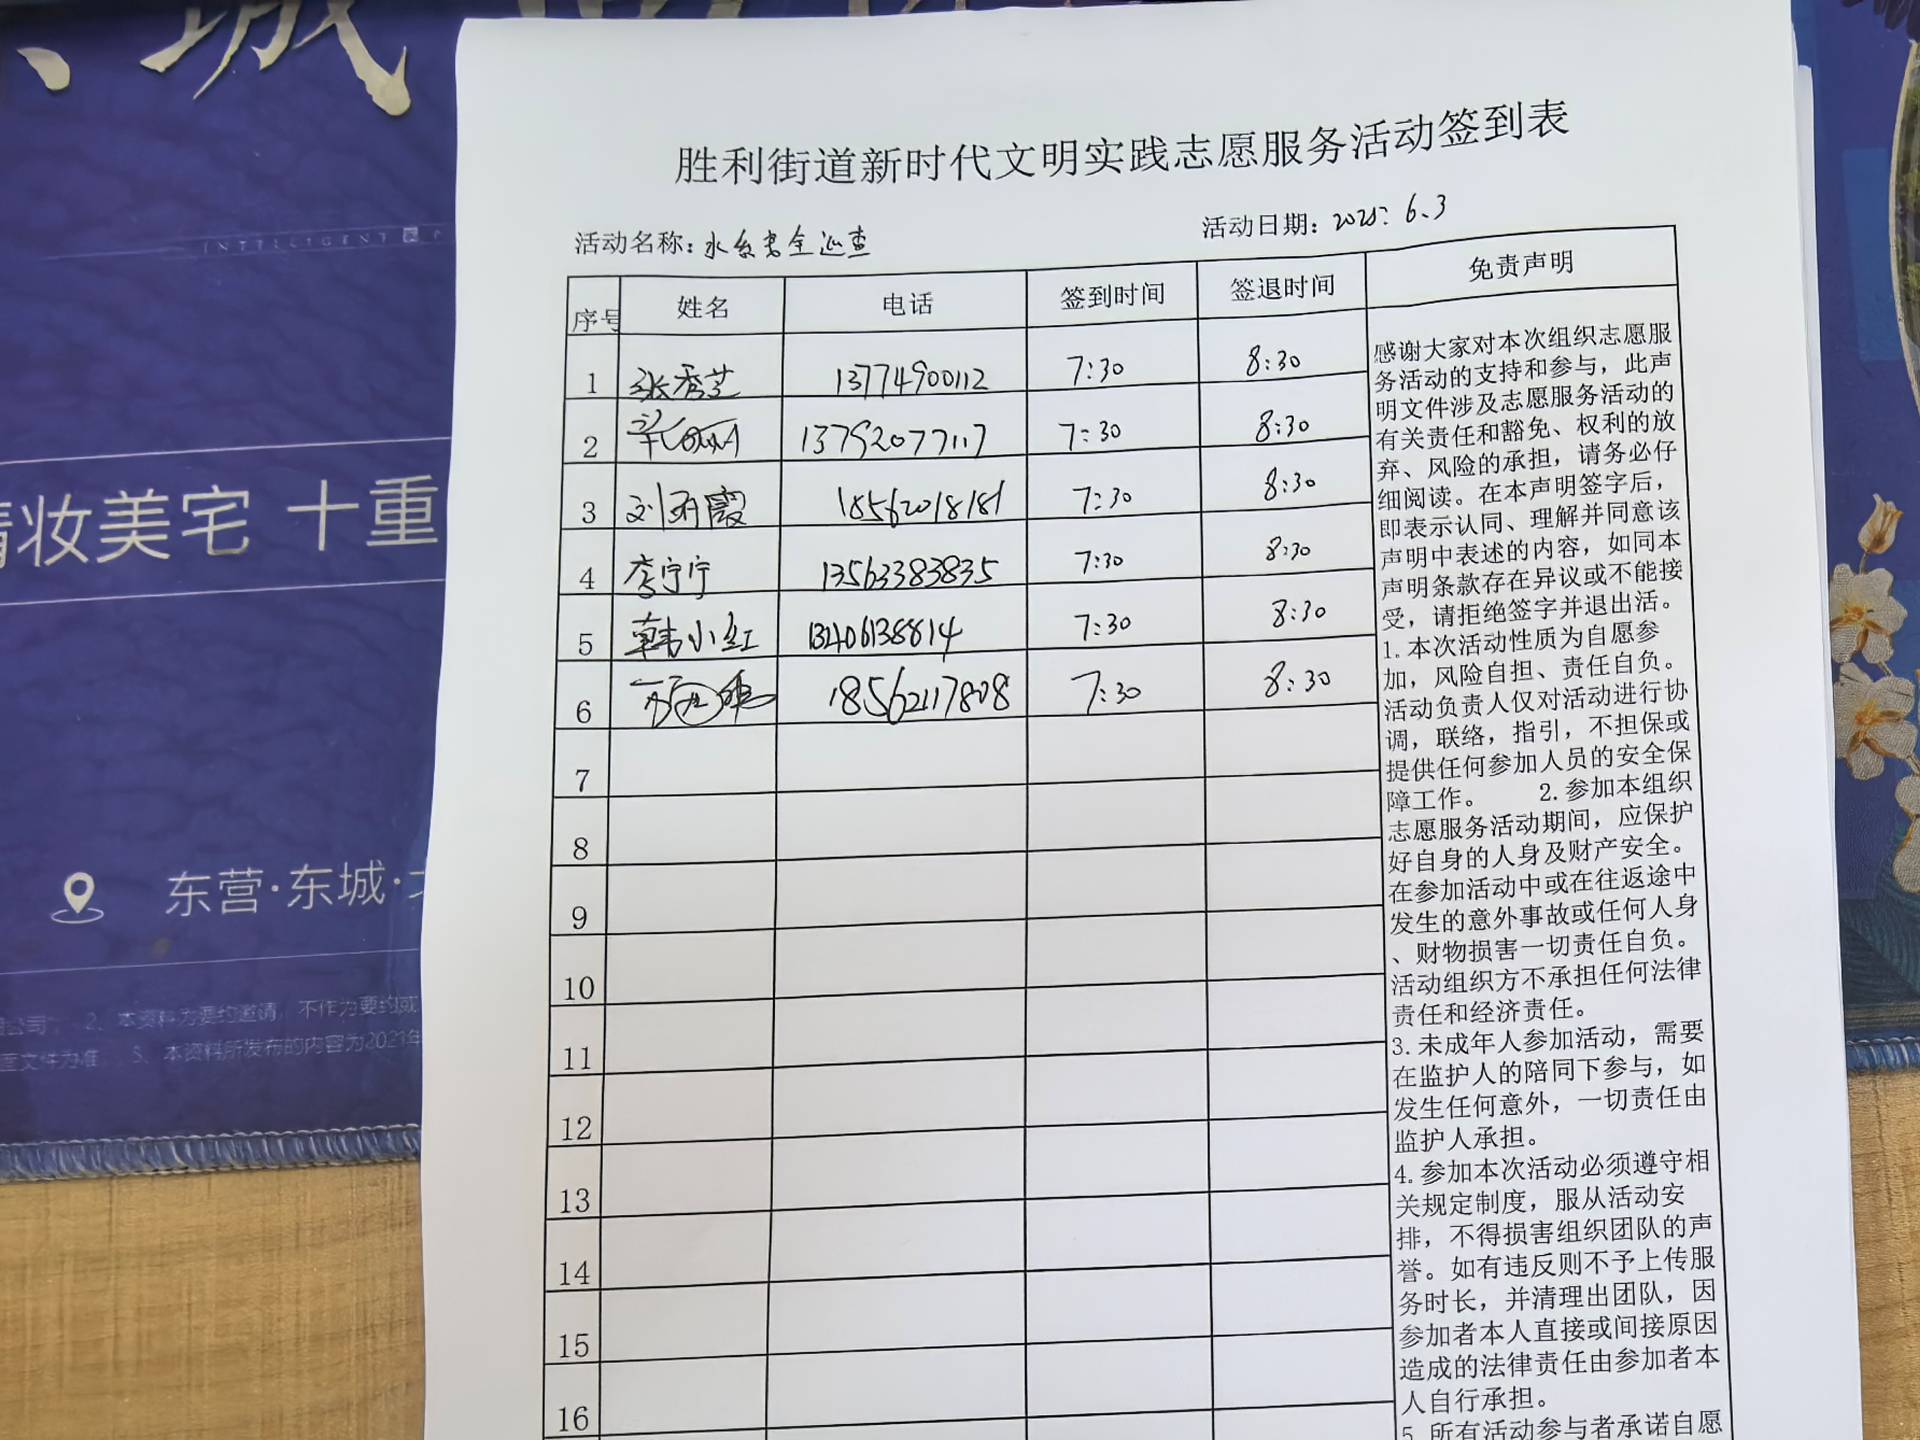 城
INTELLIGENT
妆美宅 十重
东营·东城·
公司 2、本资料为要约邀请,不作为要约或
至文件为准 3、本资料所发布的内容为2021年
胜利街道新时代文明实践志愿服务活动签到表
活动名称:水系安全巡查 活动日期:2025.6.3
序号 姓名 电话 签到时间 签退时间 免责声明
1 张秀芝 13774900112 7:30 8:30
2 13792077117 7:30 8:30
3 刘丽霞 18562018181 7:30 8:30
4 李宁宁 13563383835 7:30 8:30
5 韩小红 13406138814 7:30 8:30
6 18562117808 7:30 8:30
7
8
9
10
11
12
13
14
15
16
感谢大家对本次组织志愿服
务活动的支持和参与,此声
明文件涉及志愿服务活动的
有关责任和豁免、权利的放
弃、风险的承担,请务必仔
细阅读。在本声明签字后,
即表示认同、理解并同意该
声明中表述的内容,如同本
声明条款存在异议或不能接
受,请拒绝签字并退出活。
1.本次活动性质为自愿参
加,风险自担、责任自负。
活动负责人仅对活动进行协
调,联络,指引,不担保或
提供任何参加人员的安全保
障工作。 2.参加本组织
志愿服务活动期间,应保护
好自身的人身及财产安全。
在参加活动中或在往返途中
发生的意外事故或任何人身
、财物损害一切责任自负。
活动组织方不承担任何法律
责任和经济责任。
3.未成年人参加活动,需要
在监护人的陪同下参与,如
发生任何意外,一切责任由
监护人承担。
4.参加本次活动必须遵守相
关规定制度,服从活动安
排,不得损害组织团队的声
誉。如有违反则不予上传服
务时长,并清理出团队,因
参加者本人直接或间接原因
造成的法律责任由参加者本
人自行承担。
5.所有活动参与者承诺自愿